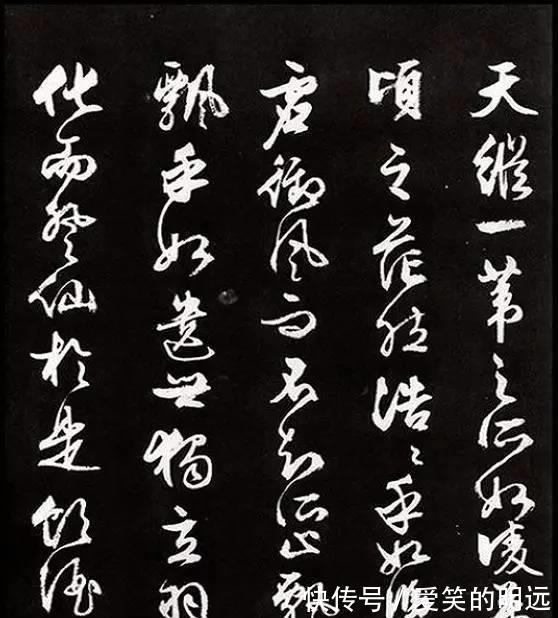 天縱一葦之所如凌萬
頃之茫然浩々乎如馮
虛御風而不知所止飄
飄乎如遺世獨立羽
化而登仙於是飲酒
快传号/爱笑的明远